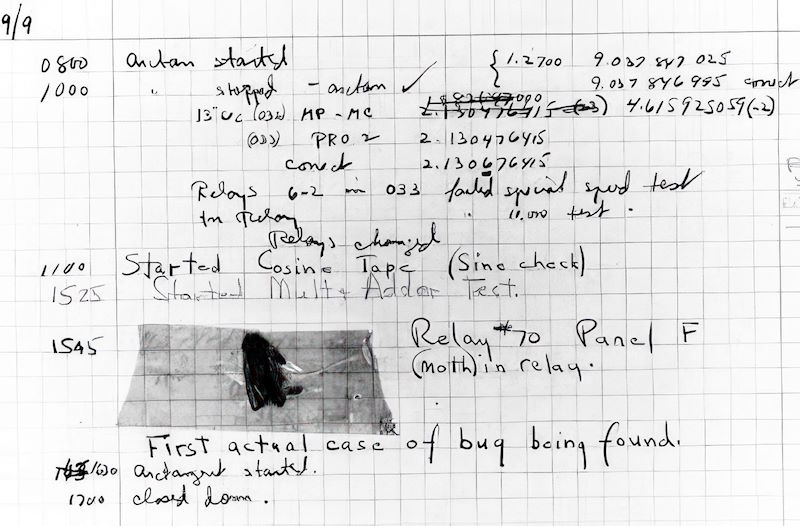 9/9
0800 arctan started { 1.2700 9.037 847 025
1000 " stopped - arctan ✓ 9.037 846 995 correct
13"uc (032) MP - MC 2.130476415 (-3) 4.615925059(-2)
(033) PRO 2 2.130476415
correct 2.130676415
Relays 6-2 in 033 failed special speed test
in relay " 11.000 test .
Relays changed
1100 Started Cosine Tape (Sine check)
1525 Started Mult+ Adder Test.
1545 Relay #70 Panel F
(moth) in relay.
First actual case of bug being found.
1630 arctangent started.
1700 closed down.